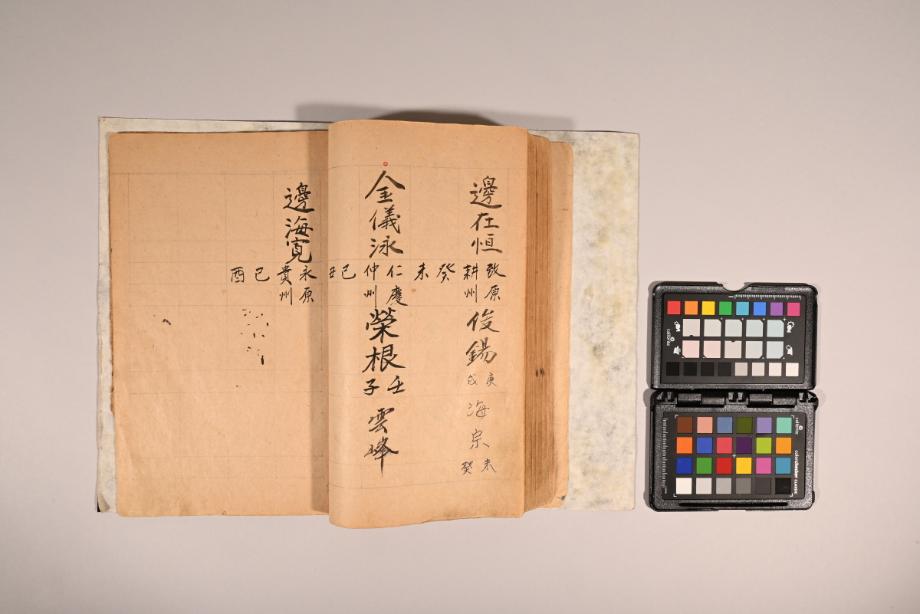 邊在恒
致原
耕州
癸
未
俊錫
庚
戌
海宗
癸
未
金儀泳
仁慶
仲州
己
丑
榮根
壬
子
雲峰
邊海寬
永原
貴州
己
酉